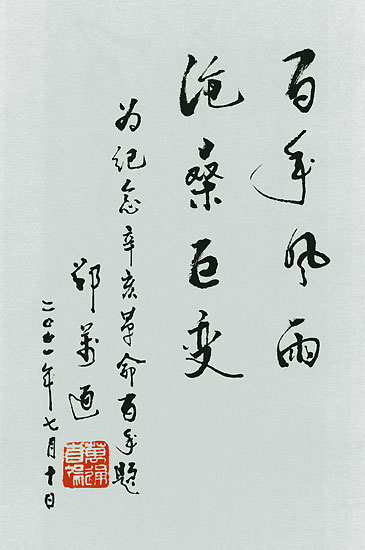 百年风雨
沧桑巨变
为纪念辛亥革命百年题
萬通
二〇一一年七月十日
萬通